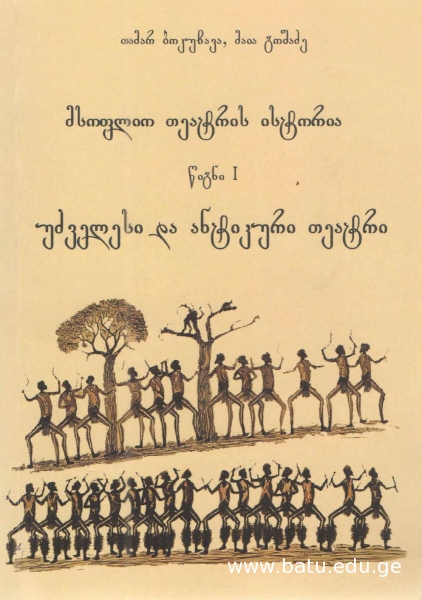 თამარ ბოკუჩავა, მაია გოშაძე
მსოფლიო თეატრის ისტორია
წიგნი I
უძველესი და ანტიკური თეატრი
www.batu.edu.ge